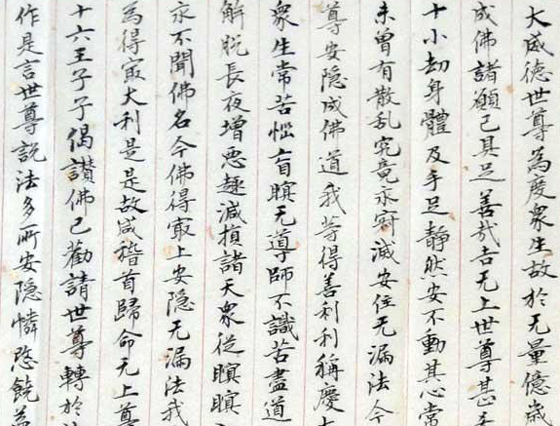 大威德世尊為度衆生故於无量億歲
成佛諸願已具足善哉吉无上世尊甚
十小劫身體及手足静然安不動其心常
未曾有散乱究竟永寂滅安住无漏法今
尊安隠成佛道我等得善利利稱慶大
衆生常苦惱盲瞑无導師不識苦盡道
解脱長夜增悪趣減損諸天衆従瞑瞑
永不聞佛名今佛得㝡上安隠无漏法我
為得㝡大利是是故咸稽首歸命无上尊
十六王子子偈讃佛已勸請世尊轉於
作是言世尊説法多所安隠憐愍饒